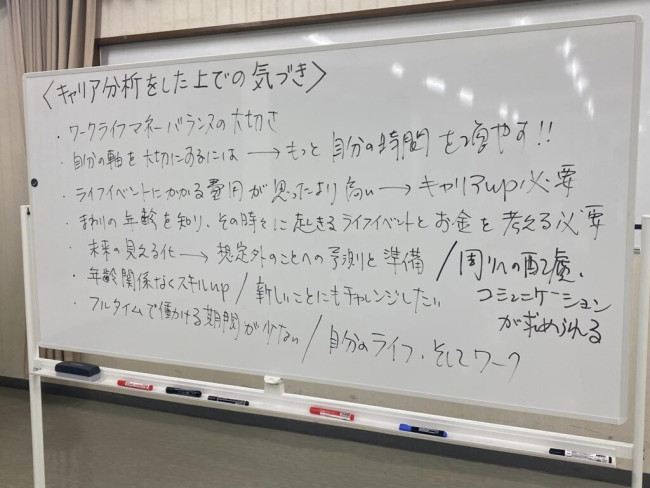 〈キャリア分析をした上での気づき〉
・ワークライフマネーバランスの大切さ
・自分の軸を大切にするには → もっと 自分の時間を増やす!!
・ライフイベントにかかる費用が思ったより高い → キャリアup必要
・まわりの年齢を知り、その時々に起しきるライフイベントとお金を考える必要
・未来の見える化 → 想定外のことへの予測と準備 / 周りへの配慮、
コミュニケーション
が求められる
・年齢関係なくスキルup / 新しいことにもチャレンジしたい
・フルタイムで働ける期間が少ない / 自分のライフ、そしてワーク